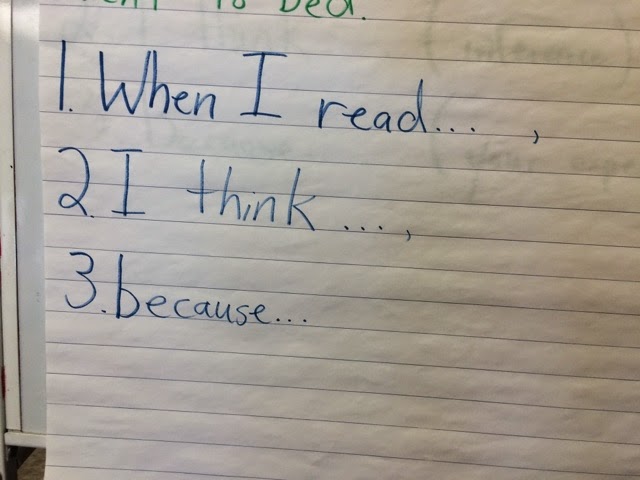 to bed.
1. When I read... ,
2. I think ...,
3. because...